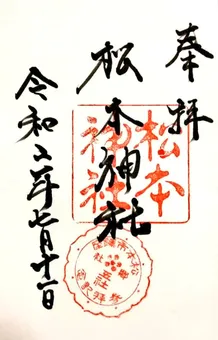 奉拝
松本神社
令和二年七月十一日
松本
神社
五社